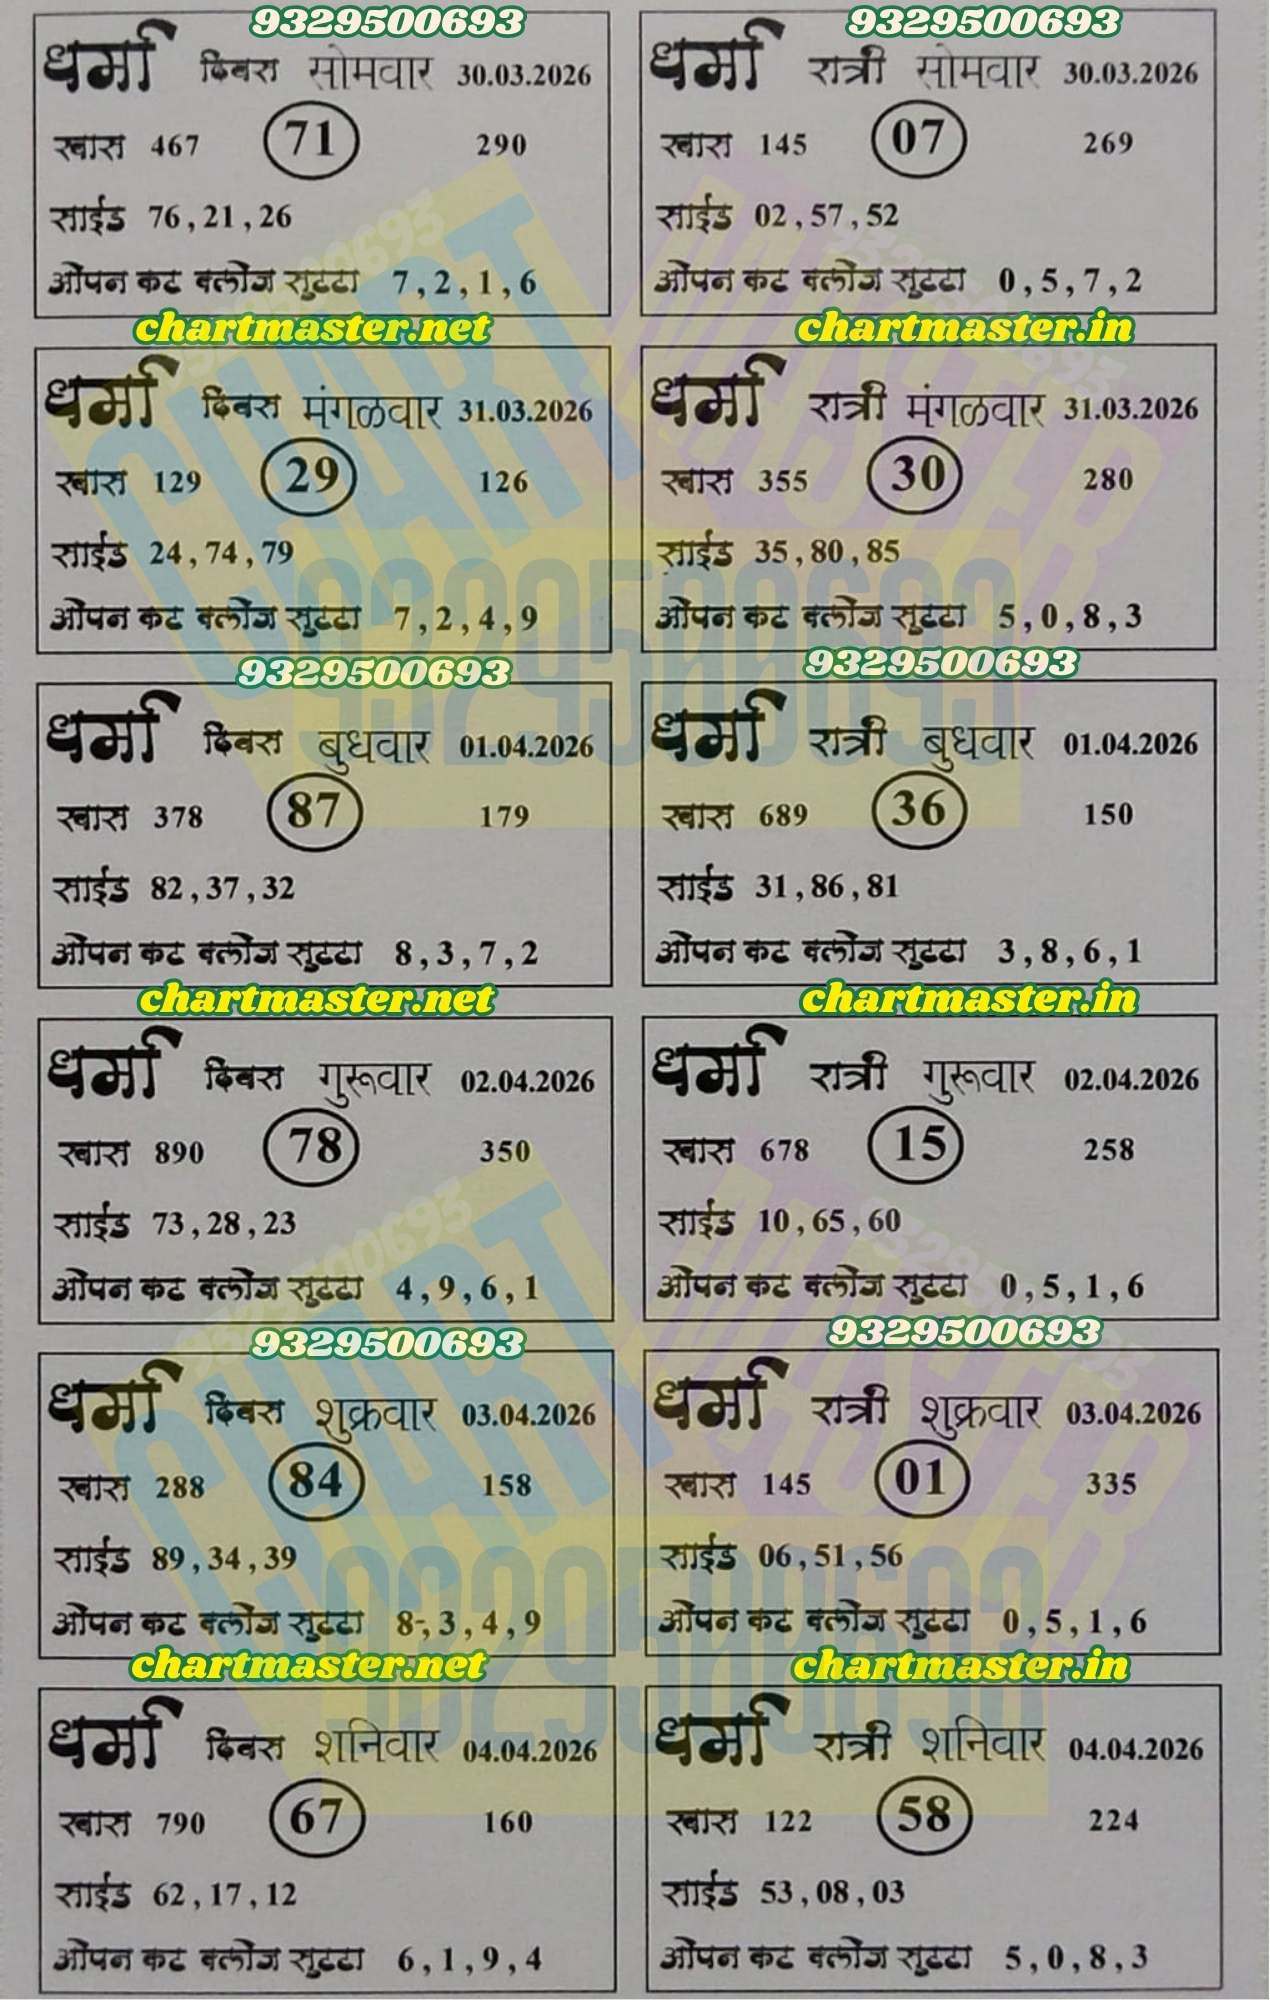 9329500693
धर्मा दिवस सोमवार 30.03.2026
खास 467 71 290
साईड 76,21,26
ओपन कट क्लोज सुटटा 7,2,1,6
chartmaster.net
9329500693
धर्मा रात्री सोमवार 30.03.2026
खास 145 07 269
साईड 02,57,52
ओपन कट क्लोज सुटटा 0,5,7,2
chartmaster.in
धर्मा दिवस मंगळवार 31.03.2026
खास 129 29 126
साईड 24,74,79
ओपन कट क्लोज सुटटा 7,2,4,9
9329500693
धर्मा रात्री मंगळवार 31.03.2026
खास 355 30 280
साईड 35,80,85
ओपन कट क्लोज सुटटा 5,0,8,3
9329500693
धर्मा दिवस बुधवार 01.04.2026
खास 378 87 179
साईड 82,37,32
ओपन कट क्लोज सुटटा 8,3,7,2
chartmaster.net
धर्मा रात्री बुधवार 01.04.2026
खास 689 36 150
साईड 31,86,81
ओपन कट क्लोज सुटटा 3,8,6,1
chartmaster.in
धर्मा दिवस गुरूवार 02.04.2026
खास 890 78 350
साईड 73,28,23
ओपन कट क्लोज सुटटा 4,9,6,1
9329500693
धर्मा रात्री गुरूवार 02.04.2026
खास 678 15 258
साईड 10,65,60
ओपन कट क्लोज सुटटा 0,5,1,6
9329500693
धर्मा दिवस शुक्रवार 03.04.2026
खास 288 84 158
साईड 89,34,39
ओपन कट क्लोज सुटटा 8,3,4,9
chartmaster.net
धर्मा रात्री शुक्रवार 03.04.2026
खास 145 01 335
साईड 06,51,56
ओपन कट क्लोज सुटटा 0,5,1,6
chartmaster.in
धर्मा दिवस शनिवार 04.04.2026
खास 790 67 160
साईड 62,17,12
ओपन कट क्लोज सुटटा 6,1,9,4
धर्मा रात्री शनिवार 04.04.2026
खास 122 58 224
साईड 53,08,03
ओपन कट क्लोज सुटटा 5,0,8,3
CHART MASTER
9329500693
CHART MASTER
9329500693